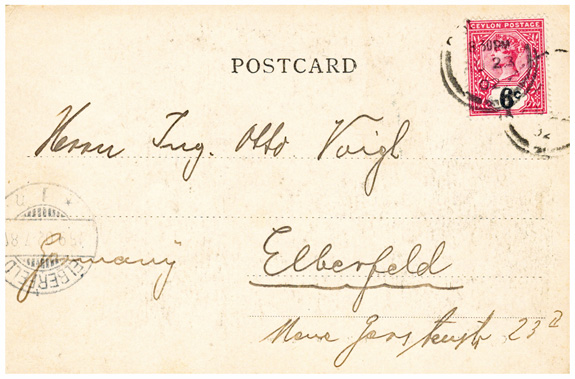 CEYLON POSTAGE
6
POSTCARD
Herrn Ing. Otto Voigl
Germany
Elberfeld
Neue 23 II
ELBERFELD